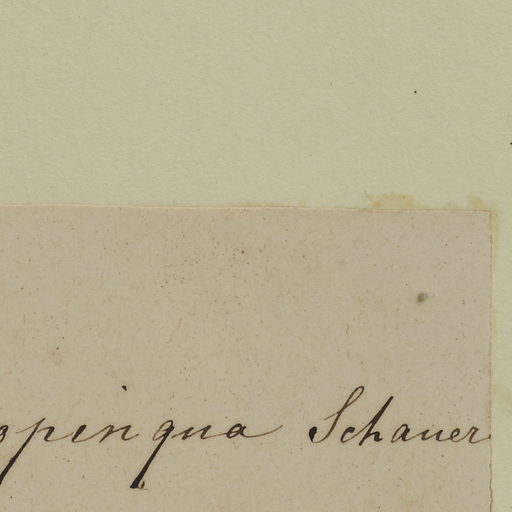 opinqua Schauer